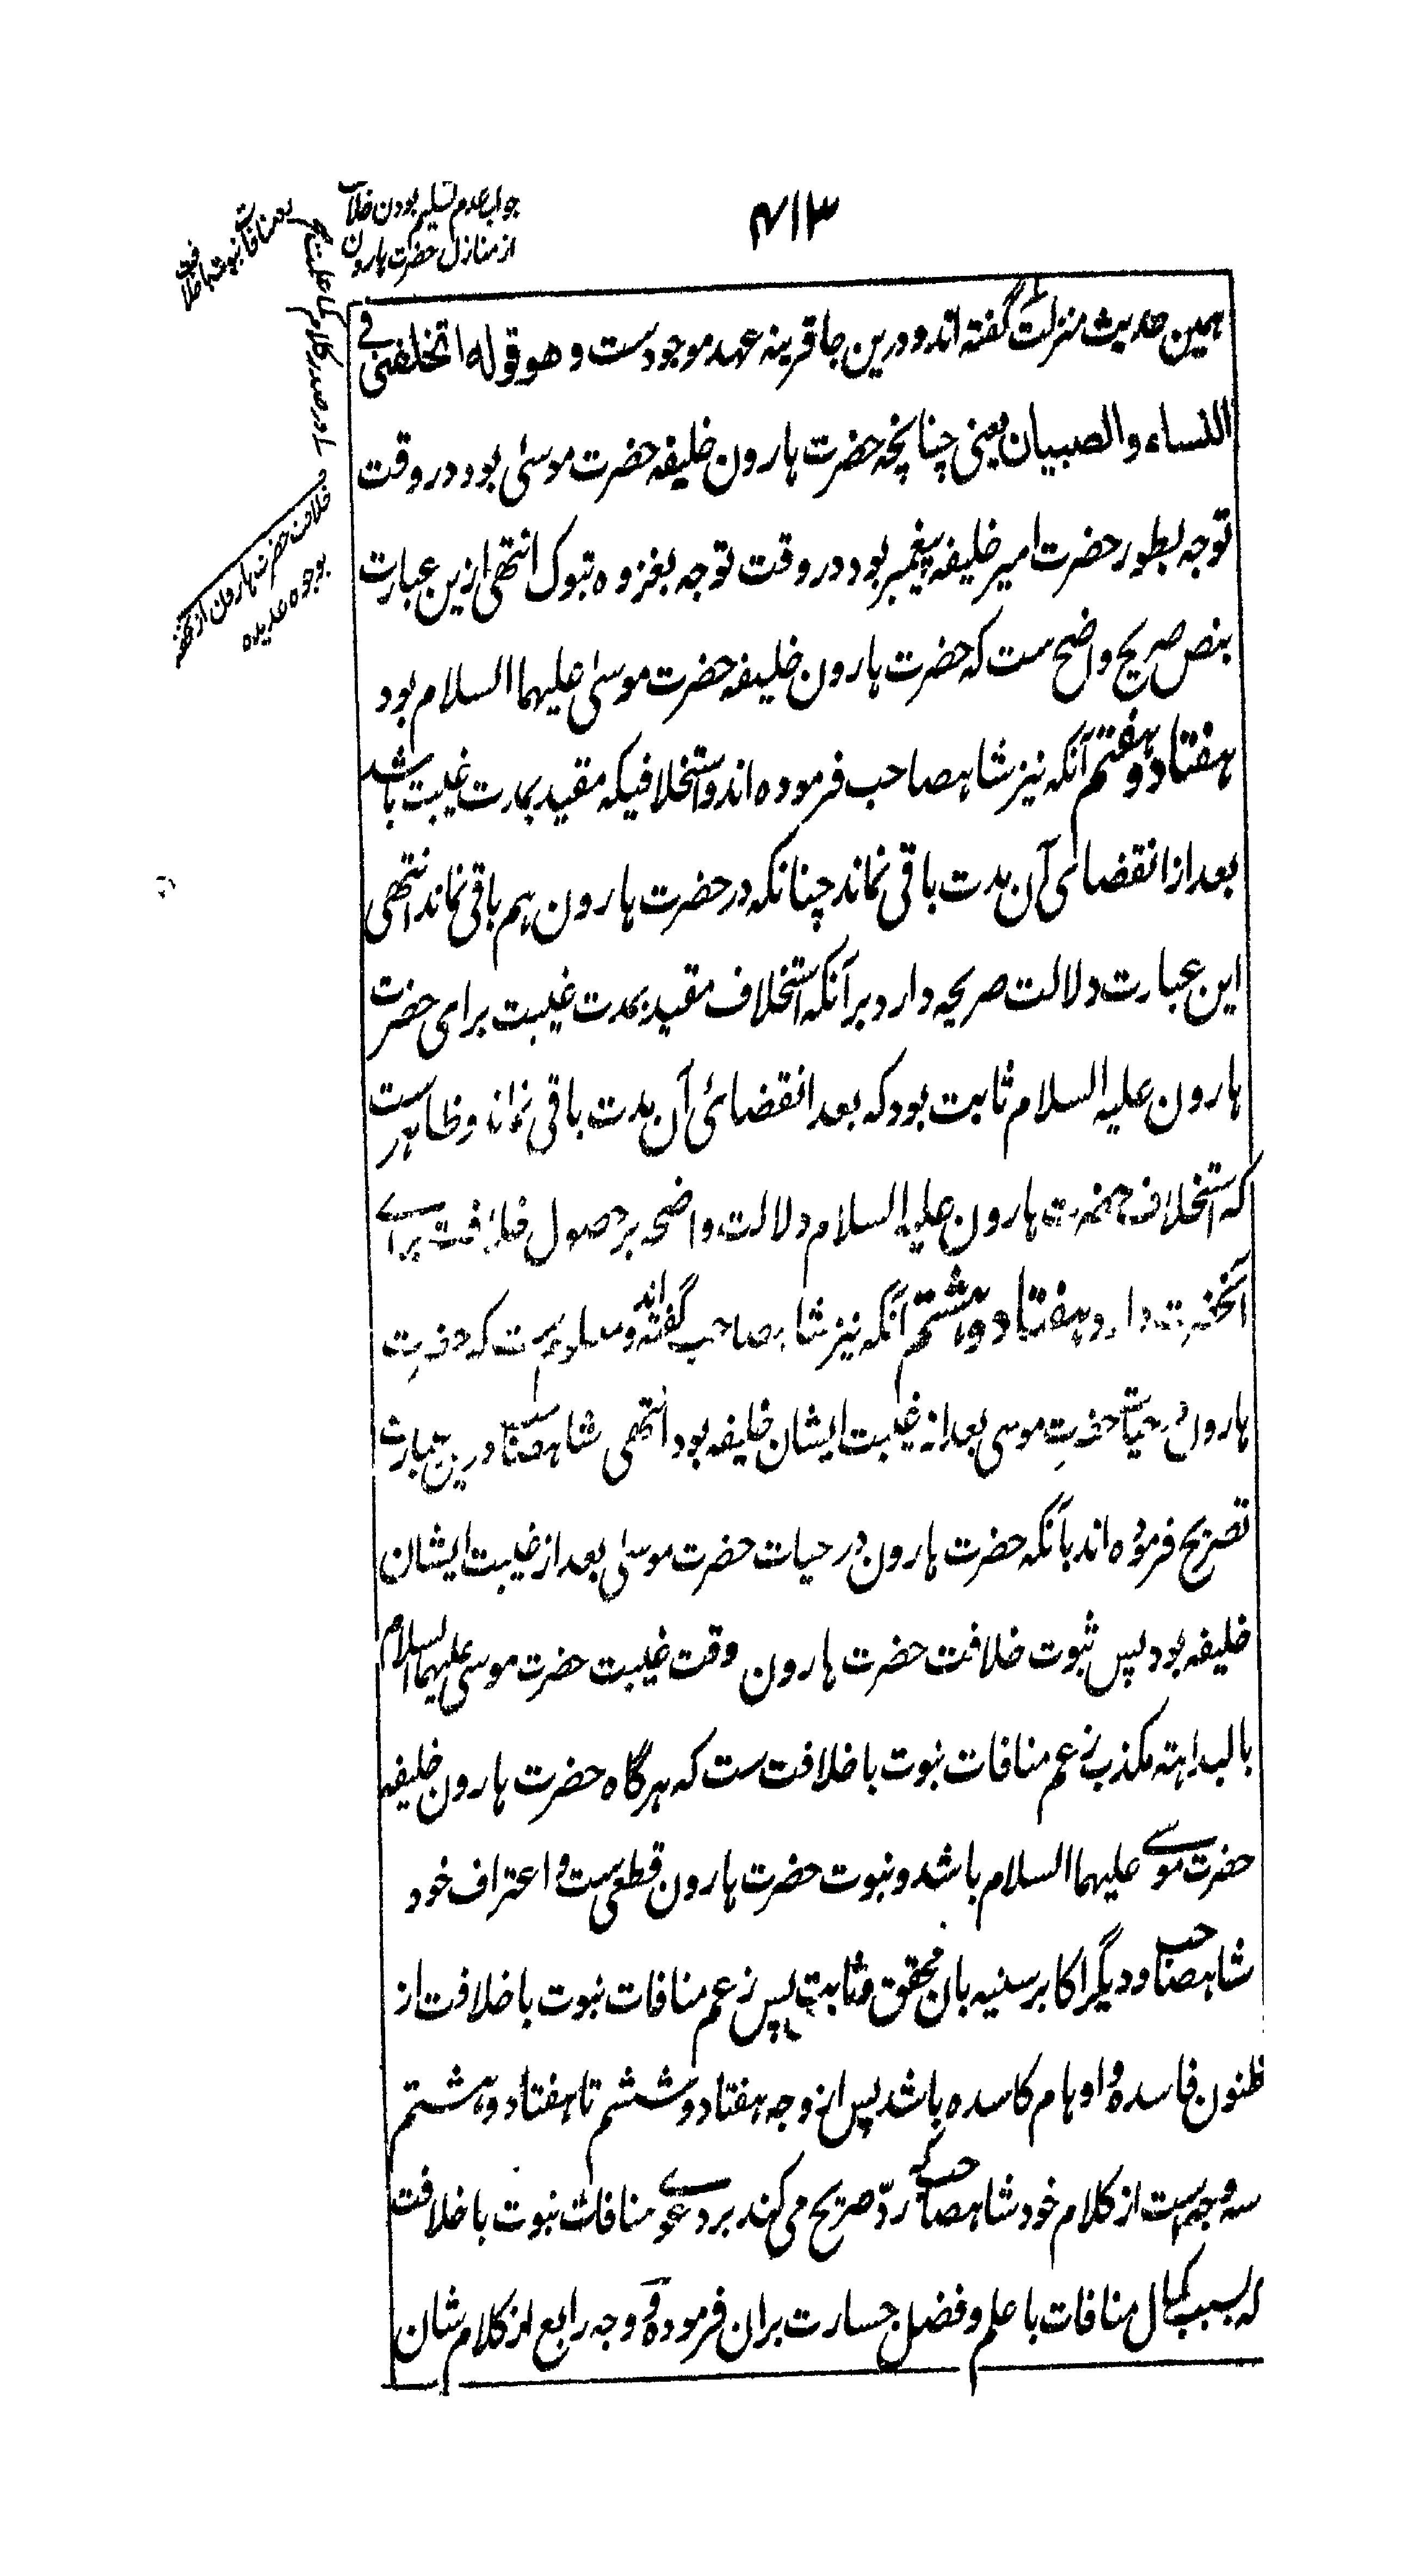 ۴۱۳
جواب عدم تسلیم بودن خلافت
از منازل حضرت هارون
همین حدیث منزلت گفته اند و درین جا قرینه عهد موجودست و هو قوله اتخلفنی فی
النساء والصبیان یعنی چنانچه حضرت هارون خلیفه حضرت موسیٰ بود در وقت
توجه بطور حضرت امیر خلیفه پیغمبر بود در وقت توجه بغزوه تبوک انتهی ازین عبارت
بنص صریح واضح ست که حضرت هارون خلیفه حضرت موسیٰ علیهما السلام بود
هفتاد و هفتم آنکه نیز شاهصاحب فرموده اند و استخلافیکه مقید بمدت غیبت باشد
بعد از انقضای آن مدت باقی نماند چنانکه در حضرت هارون هم باقی نماند انتهی
این عبارت دلالت صریحه دارد بر آنکه استخلاف مقید بمدت غیبت برای حضرت
هارون علیه السلام ثابت بود که بعد انقضائی آن مدت باقی نماند و ظاهرست
که استخلاف حضرت هارون علیه السلام دلالت واضحه بر حصول خلافت برای
آنحضرت دارد هفتاد و هشتم آنکه نیز شاهصاحب گفته اند و معلومست که حضرت
هارون در حیات حضرت موسی بعد از غیبت ایشان خلیفه بود انتهی شاهصاحب درین عبارت
تصریح فرموده اند بآنکه حضرت هارون در حیات حضرت موسیٰ بعد از غیبت ایشان
خلیفه بود پس ثبوت خلافت حضرت هارون وقت غیبت حضرت موسی علیهما السلام
بالبداهته مکذب زعم منافات نبوت با خلافت ست که هرگاه حضرت هارون خلیفه
حضرت موسی علیهما السلام باشد و نبوت حضرت هارون قطعی ست و اعتراف خود
شاهصاحب و دیگر اکابر سنیه بان محقق و ثابت پس زعم منافات نبوت با خلافت از
ظنون فاسده و اوهام کاسده باشد پس از وجه هفتاد و ششم تا هفتاد و هشتم
سه وجه است از کلام خود شاهصاحب که ردّ صریح می کند بر دعوی منافات نبوت با خلافت
که بسبب کمال منافات با علم و فضل جسارت بران فرموده و وجه رابع از کلام شان
بمنافات نبوت با خلافت
خلافت حضرت هارون از
بوجوه عدیده